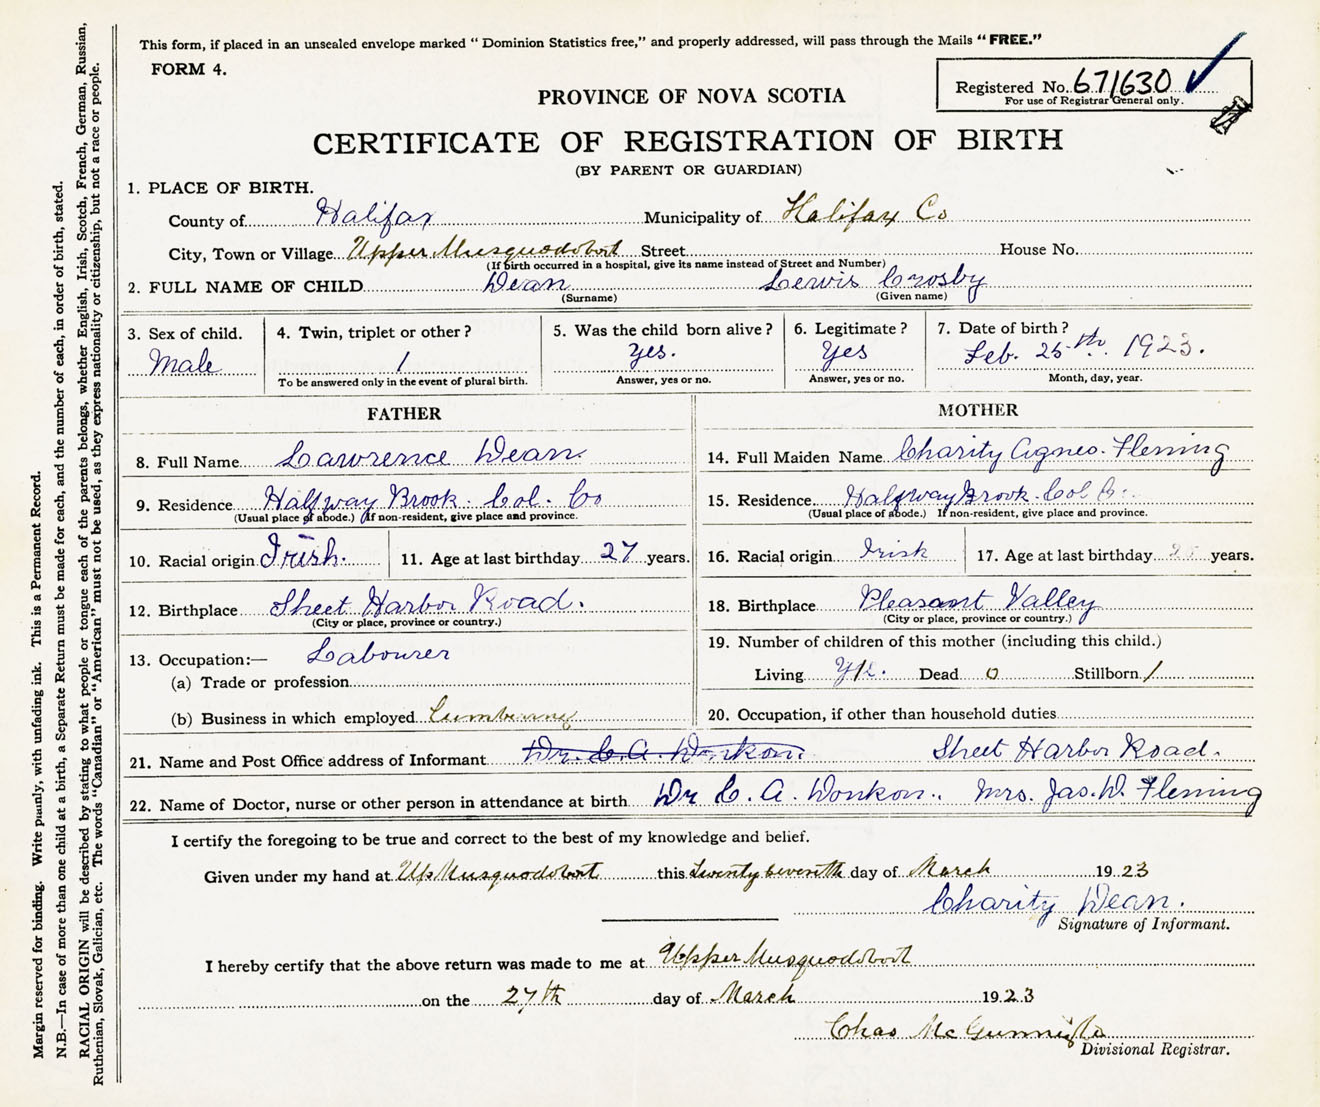 This form, if placed in an unsealed envelope marked “ Dominion Statistics free,” and properly addressed, will pass through the Mails “ FREE.”
FORM 4.
Registered No. 671630
For use of Registrar General only.
PROVINCE OF NOVA SCOTIA
CERTIFICATE OF REGISTRATION OF BIRTH
(BY PARENT OR GUARDIAN)
1. PLACE OF BIRTH.
County of Halifax Municipality of Halifax Co
City, Town or Village Upper Musquodoboit Street House No.
(If birth occurred in a hospital, give its name instead of Street and Number)
2. FULL NAME OF CHILD Dean Lewis Crosby
(Surname) (Given name)
3. Sex of child. 4. Twin, triplet or other? 5. Was the child born alive? 6. Legitimate? 7. Date of birth?
Male 1 Yes. Yes Feb. 25th. 1923.
To be answered only in the event of plural birth. Answer, yes or no. Answer, yes or no. Month, day, year.
FATHER
8. Full Name Lawrence Dean
9. Residence Halfway Brook. Col. Co
(Usual place of abode.) If non-resident, give place and province.
10. Racial origin Irish. 11. Age at last birthday 27 years.
12. Birthplace Sheet Harbor Road.
(City or place, province or country.)
13. Occupation:— Labourer
(a) Trade or profession
(b) Business in which employed Lumbering
MOTHER
14. Full Maiden Name Charity Agnes. Fleming
15. Residence Halfway Brook. Col
(Usual place of abode.) If non-resident, give place and province.
16. Racial origin Irish 17. Age at last birthday years.
18. Birthplace Pleasant Valley
(City or place, province or country.)
19. Number of children of this mother (including this child.)
Living Dead 0 Stillborn /
20. Occupation, if other than household duties
21. Name and Post Office address of Informant Dr. C. A. Sheet Harbor Road.
22. Name of Doctor, nurse or other person in attendance at birth Dr C. A. Donkon. Mrs. Jas. W. Fleming
I certify the foregoing to be true and correct to the best of my knowledge and belief.
Given under my hand at Up Musquodoboit this twenty seventh day of March 1923
Charity Dean.
Signature of Informant.
I hereby certify that the above return was made to me at Upper Musquodoboit
on the 27th day of March 1923
Chas McGunnigle
Divisional Registrar.
Margin reserved for binding. Write plainly, with unfading ink. This is a Permanent Record.
N.B.—In case of more than one child at a birth, a Separate Return must be made for each, and the number of each, in order of birth, stated.
RACIAL ORIGIN will be described by stating to what people or tongue each of the parents belongs, whether English, Irish, Scotch, French, German, Russian,
Ruthenian, Slovak, Galician, etc. The words “Canadian” or “American” must not be used, as they express nationality or citizenship, but not a race or people.